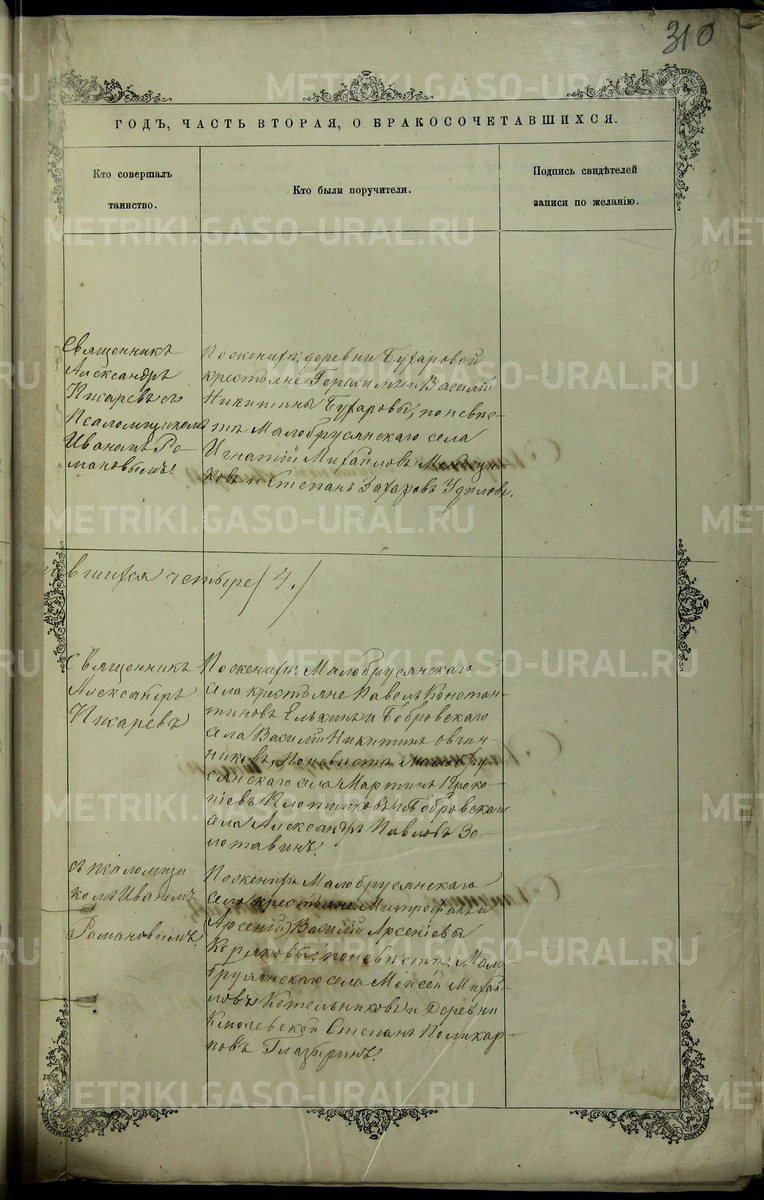 310
ГОДЪ, ЧАСТЬ ВТОРАЯ, О БРАКОСОЧЕТАВШИХСЯ.
Кто совершалъ
таинство.
Кто были поручители.
Подпись свидѣтелей
записи по желанію.
Священникъ
Александръ
Пикаревъ съ
Псаломщикомъ
Иваномъ Ро-
мановымъ.
По женихѣ: деревни Бухаровой
крестьяне и Василій
Никитины Бухаровы; по невѣс-
тѣ Малобрусянскаго села
Игнатій Михайловъ
ковъ и Степанъ Захаровъ
вшихся четыре /4./
Священникъ
Александръ
Пикаревъ
По женихѣ: Малобрусянскаго
села крестьяне Павелъ Констан-
тиновъ Елькинъ и Бобровскаго
села Василій Никитинъ Овчин-
никовъ, по невѣстѣ Малобру-
сянскаго села Мартинъ Проко-
піевъ Плотниковъ и Бобровскаго
села Александръ Павловъ Зо-
лотавинъ.
съ псаломщи
комъ Иваномъ
Романовымъ.
По женихѣ Малобрусянскаго
села крестьяне Митрофанъ и
Арсеній Василій Арсеніевы
по невѣстѣ: Мало
брусянскаго села Моисей Михай-
ловъ Котельниковъ и деревни
Ключевской Степанъ Поликар-
повъ Глазыринъ.
METRIKI.GASO-URAL.RU